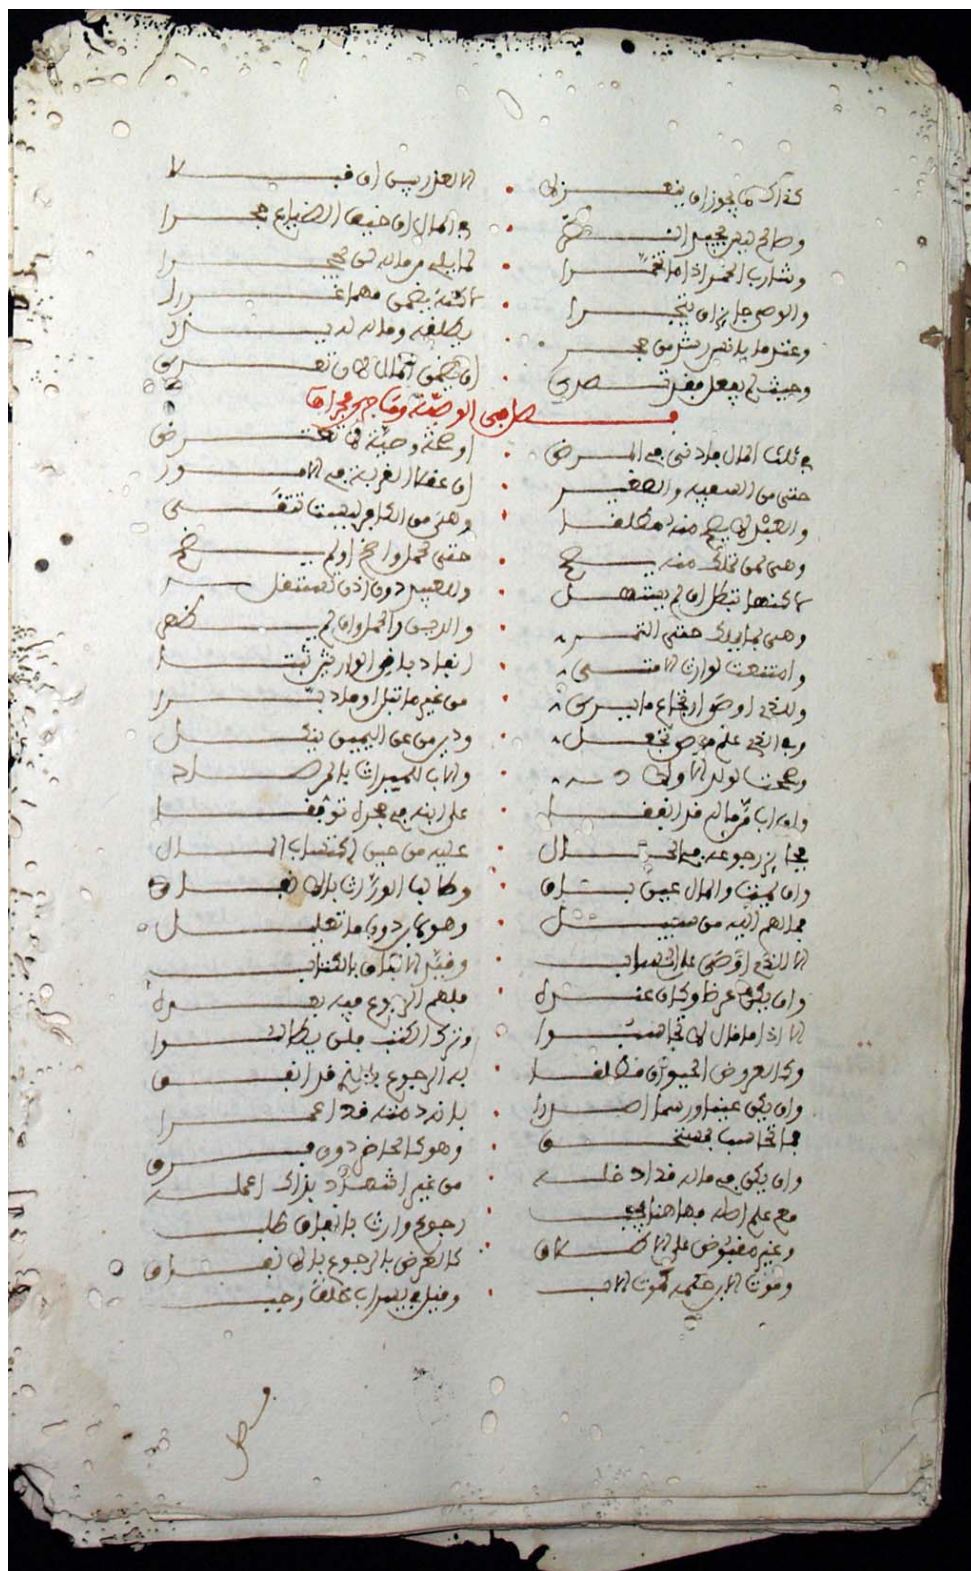 كذاك لا يجوز ان ينعزلا • الا لعذر بين ان قبلا
وصالح ليس يجيد النظرا • في المال ان خيف الضياع حجرا
وشارب الخمر اذا ما ثمرا • لما يلي من ماله لن يحجرا
والوصي جائز ان يتجرا • لكنه يضمن مهما غررا
وعندما يانس رشد من حجر • يطلقه وماله له يذر
وحيث لم يفعل فقد تصدى • ان يضمن المال لان تعدى
فصل في الوصية وما جرى مجراها
في ثلث المال فادنى في المرض • او صحة وصية لا تعترض
حتى من السفيه والصغير • ان عقلا القربة في الامور
والعبد لا يصح منه مطلقا • وهي من الكافر ليست تتقى
وهي لمن تملك منه يصح • حتى لحمل واضح او لم يضح
لكنها تبطل ان لم يستهل • وللعبيد دون اذن تستقل
وهي بما يملك حتى الثمر • والدين والحمل وان لم يظهر
وامتنعت لوارث الا متى • انفاذ باقي الوارثين ثبتا
وللذي اوصى ارتجاع ما يرى • من غير ما بتل او ما دبرا
وفي الذي علم موص تجعل • ودين من عن اليمين ينكل
وصححت لولد الاولاد • والاب للميراث بالمرصاد
وان اب من ماله قد انفقا • على ابنه في حجره ترفقا
فجائز رجوعه في الحال • عليه من حين اكتساب المال
وان يمت والمال عين باق • وطالب الوارث بالانفاق
فما لهم اليه من سبيل • وهو للابن دون ما تعليل
الا الذي اوصى على الحساب • وقيد الانفاق بالكتاب
وان يكن عرضا وكان عنده • فلهم الرجوع فيه بعده
الا اذا ما قال لا تحاسبوا • وترك الكتب فلن يطالبوا
وكالعروض الحيوان مطلقا • به الرجوع بالذي قد انفق
وان يكن عينا ورسما اصدرا • بانه ذمته قد اعمرا
فما تحاسب لمستحق • وهو كالحاضر دون فرق
وان يكن في ماله قد ادخله • من غير اشهاد بذاك اعمله
مع علم اصله فهاهنا يجب • رجوع وارث بانفاق طلب
وغير مقبوض على الاطلاق • كالعرض بالرجوع بالانفاق
وموت الابن حكمه كموت الاب • وقيل في يسر اب حلف وجب
فصل